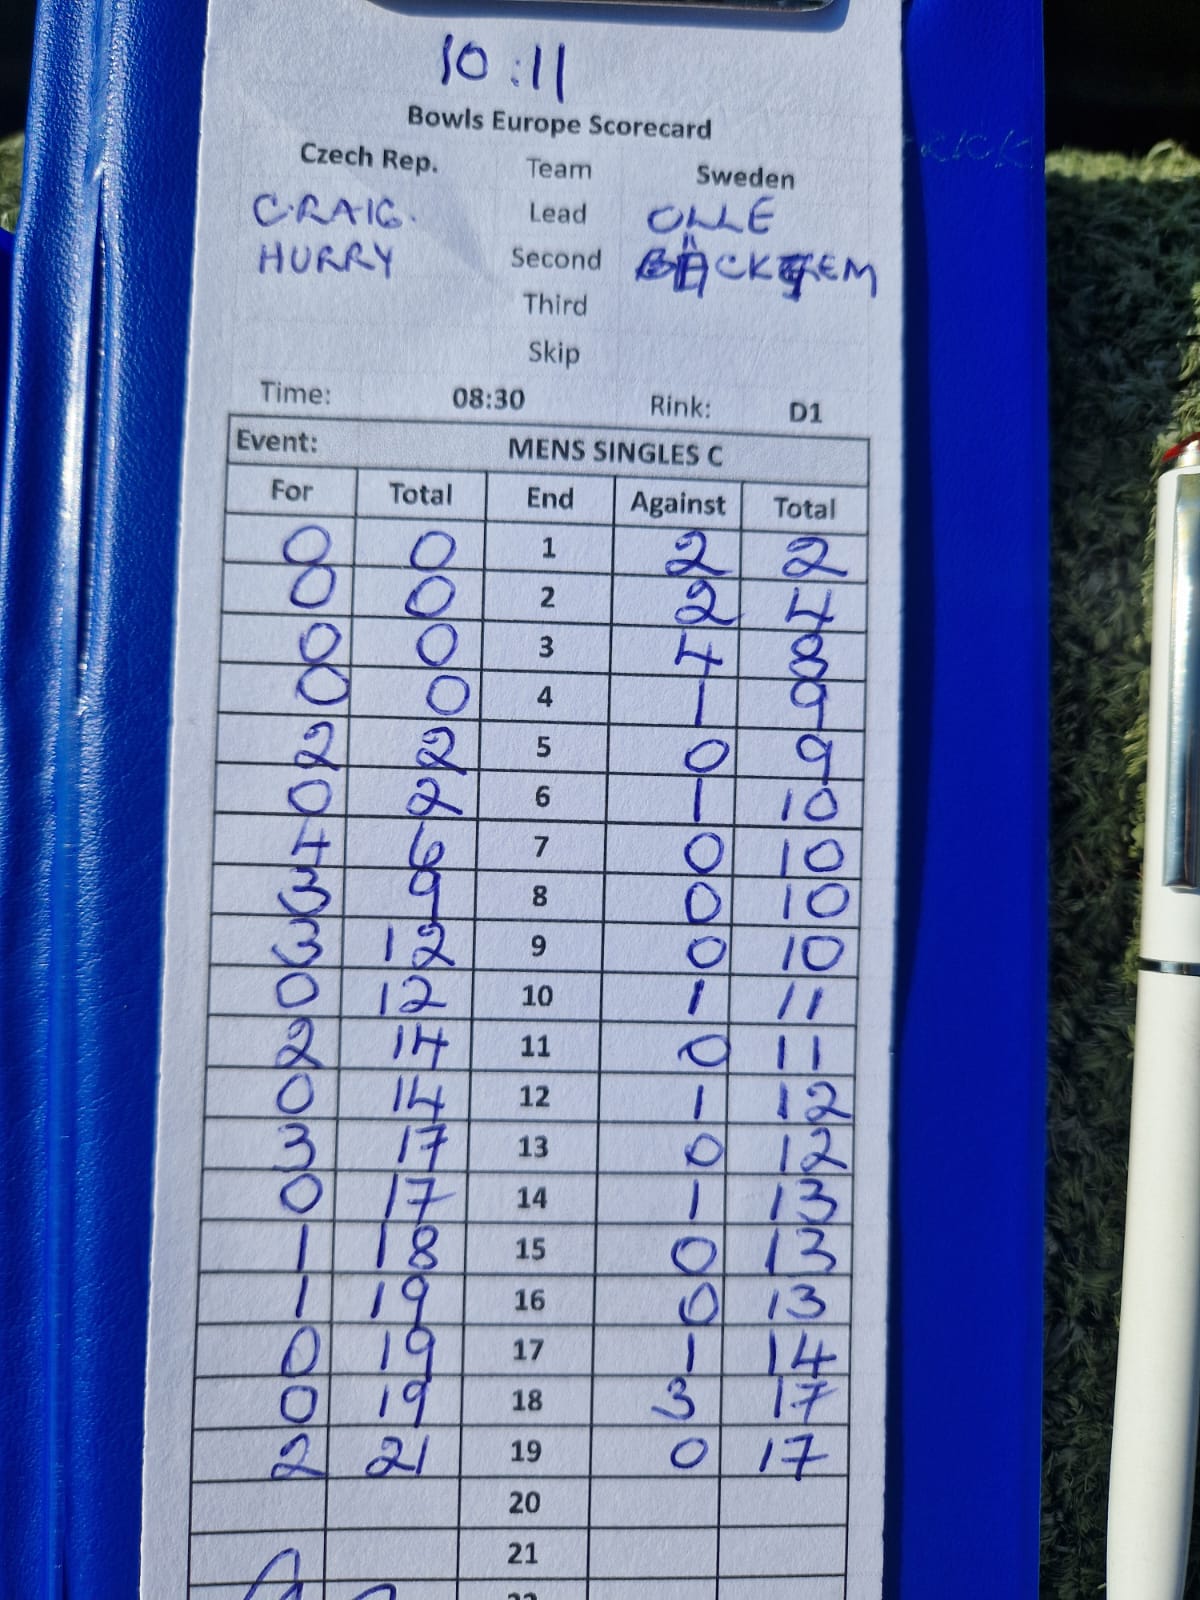 10:11
Bowls Europe Scorecard
Czech Rep. Team Sweden
CRAIG. Lead OLLE
HURRY Second
Third
Skip
Time: 08:30 Rink: D1
Event: MENS SINGLES C
For Total End Against Total
0 0 1 2 2
0 0 2 2 4
0 0 3 4 8
0 0 4 1 9
2 2 5 0 9
0 2 6 1 10
4 6 7 0 10
3 9 8 0 10
3 12 9 0 10
0 12 10 1 11
2 14 11 0 11
0 14 12 1 12
3 17 13 0 12
0 17 14 1 13
1 18 15 0 13
1 19 16 0 13
0 19 17 1 14
0 19 18 3 17
2 21 19 0 17
20
21